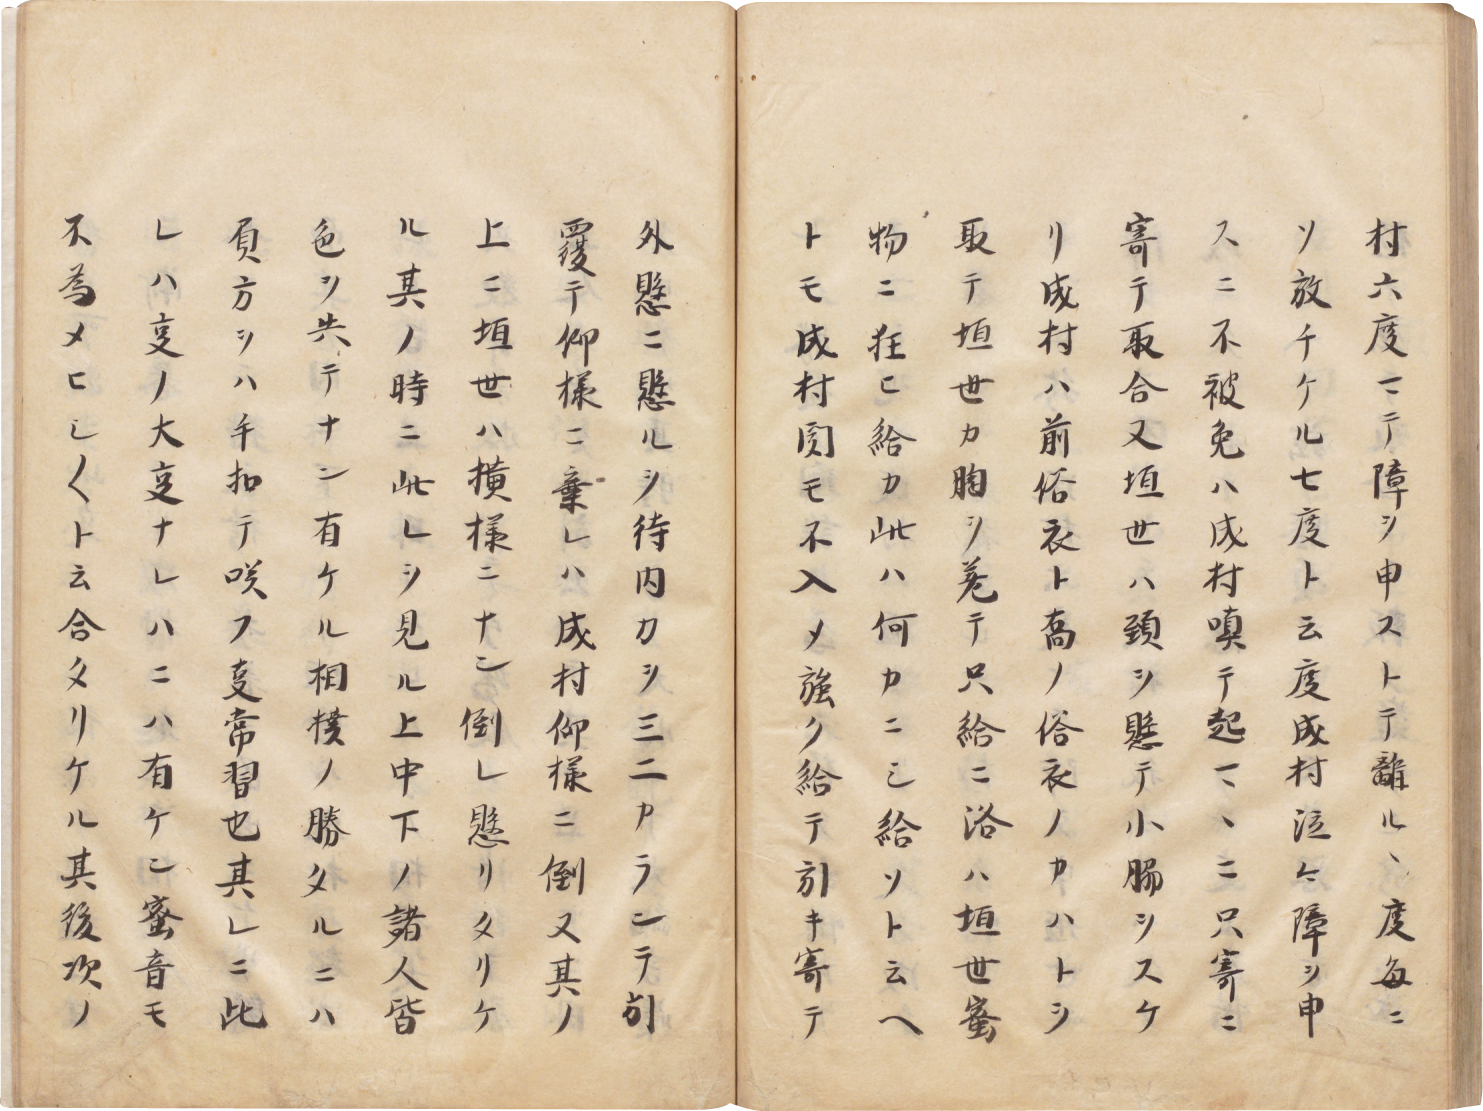 村六度マテ障ヲ申ストテ離ルヽ度毎ニ
ソ放チケル七度ト云度成村泣々障ヲ申
スニ不被免ハ成村嗔テ起マヽニ只寄ニ
寄テ取合又垣世ハ頸ヲ懸テ小脇ヲスケ
リ成村ハ前俗衣ト喬ノ俗衣ノカハトヲ
取テ垣世カ胸ヲ差テ只給ニ洛ハ垣世蜜
物ニ狂ヒ給カ此ハ何カニシ給ソト云ヘ
トモ成村聞モ不入メ強ク給テ引キ寄テ
外懸ニ懸ルヲ待内カヲ三二カラシテ引
覆テ仰様ニ棄レハ成村仰様ニ倒又其ノ
上ニ垣世ハ横様ニナン倒レ懸リタリケ
ル其ノ時ニ此レヲ見ル上中下ノ諸人皆
色ヲ失テナン有ケル相撲ノ勝タルニハ
負方ヲハ手扣テ咲フ事常習也其レニ此
レハ事ノ大事ナレハニハ有ケン蜜音モ
不為メヒシ〱ト云合タリケル其後次ノ